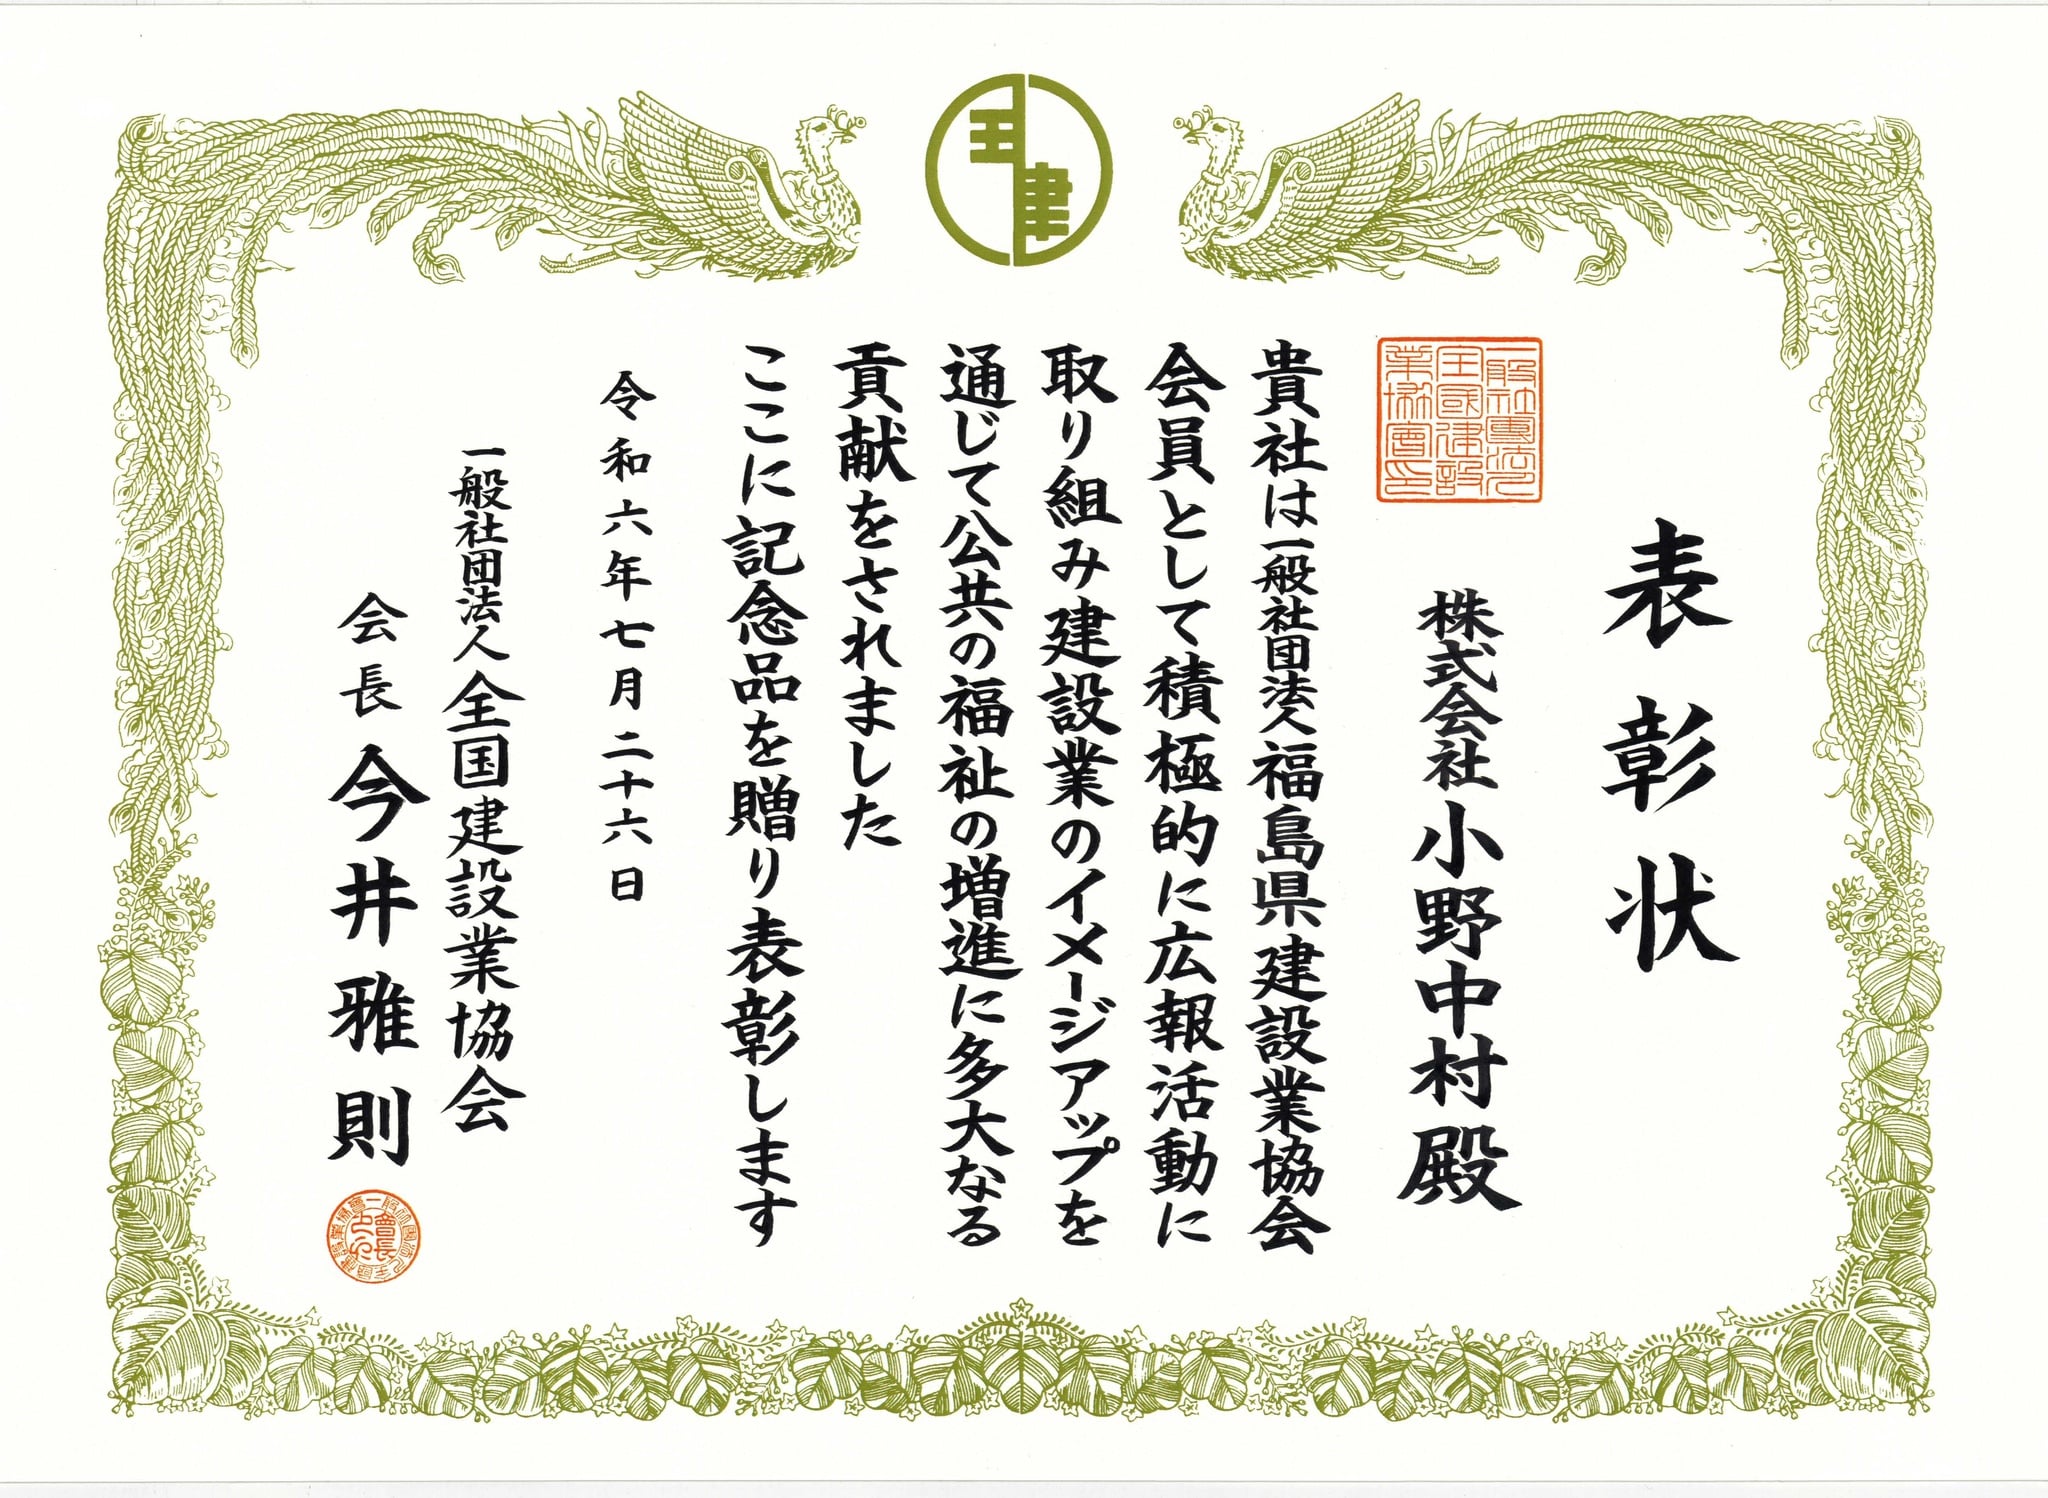 表彰状
株式会社小野中村殿
貴社は一般社団法人福島県建設業協会
会員として積極的に広報活動に
取り組み建設業のイメージアップを
通じて公共の福祉の増進に多大なる
貢献をされました
ここに記念品を贈り表彰します
令和六年七月二十六日
一般社団法人全国建設業協会
会長今井雅則
一般社團法人
全國建設
業協會印